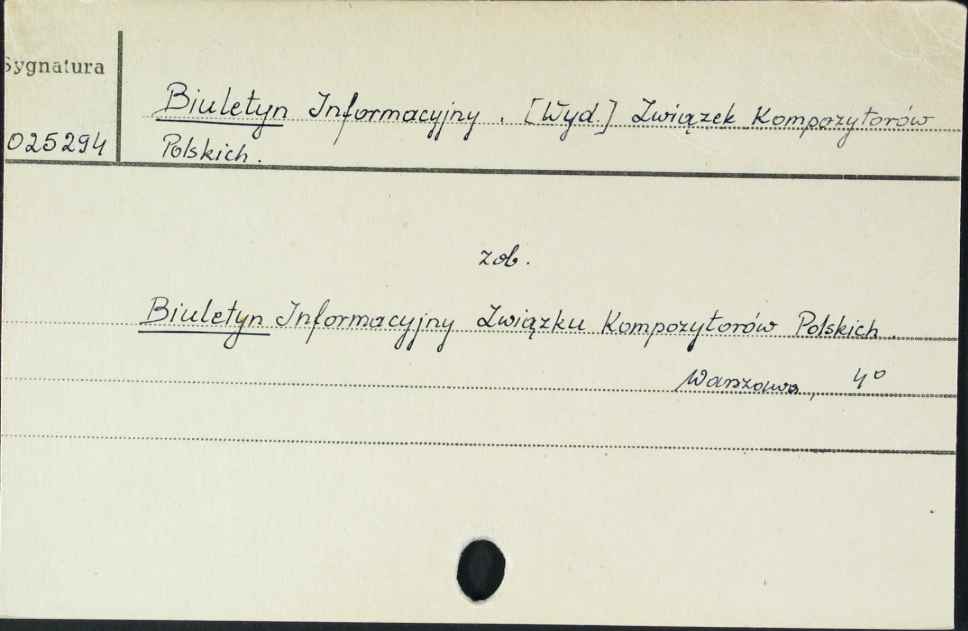 Sygnatura
Biuletyn Informacyjny. [Wyd.] Związek Kompozytorów
025294 Polskich.
zob.
Biuletyn Informacyjny Związku Kompozytorów Polskich.
Warszawa, 4°